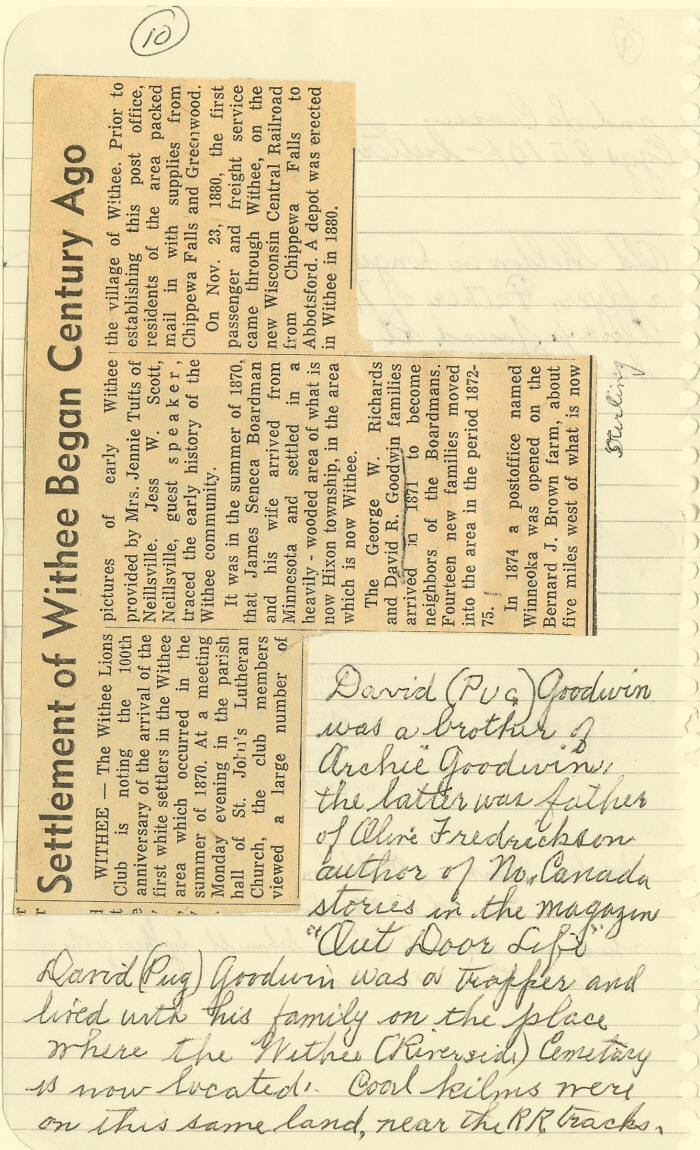 10
Settlement of Withee Began Century Ago
WITHEE — The Withee Lions
Club is noting the 100th
anniversary of the arrival of the
first white settlers in the Withee
area which occurred in the
summer of 1870. At a meeting
Monday evening in the parish
hall of St. John's Lutheran
Church, the club members
viewed a large number of
pictures of early Withee
provided by Mrs. Jennie Tufts of
Neillsville. Jess W. Scott,
Neillsville, guest speaker,
traced the early history of the
Withee community.
It was in the summer of 1870,
that James Seneca Boardman
and his wife arrived from
Minnesota and settled in a
heavily - wooded area of what is
now Hixon township, in the area
which is now Withee.
The George W. Richards
and David R. Goodwin families
arrived in 1871 to become
neighbors of the Boardmans.
Fourteen new families moved
into the area in the period 1872-
75.
In 1874 a postoffice named
Winneoka was opened on the
Bernard J. Brown farm, about
five miles west of what is now
the village of Withee. Prior to
establishing this post office,
residents of the area packed
mail in with supplies from
Chippewa Falls and Greenwood.
On Nov. 23, 1880, the first
passenger and freight service
came through Withee, on the
new Wisconsin Central Railroad
from Chippewa Falls to
Abbotsford. A depot was erected
in Withee in 1880.
Sterling
David (Pug) Goodwin
was a brother of
Archie Goodwin,
the latter was father
of Olive Fredrickson
author of No. Canada
stories in the magazin
"Out Door Life"
David (Pug) Goodwin was a trapper and
lived with his family on the place
where the Withee (Riverside) Cemetary
is now located. Coal kilms were
on this same land, near the RR. tracks.